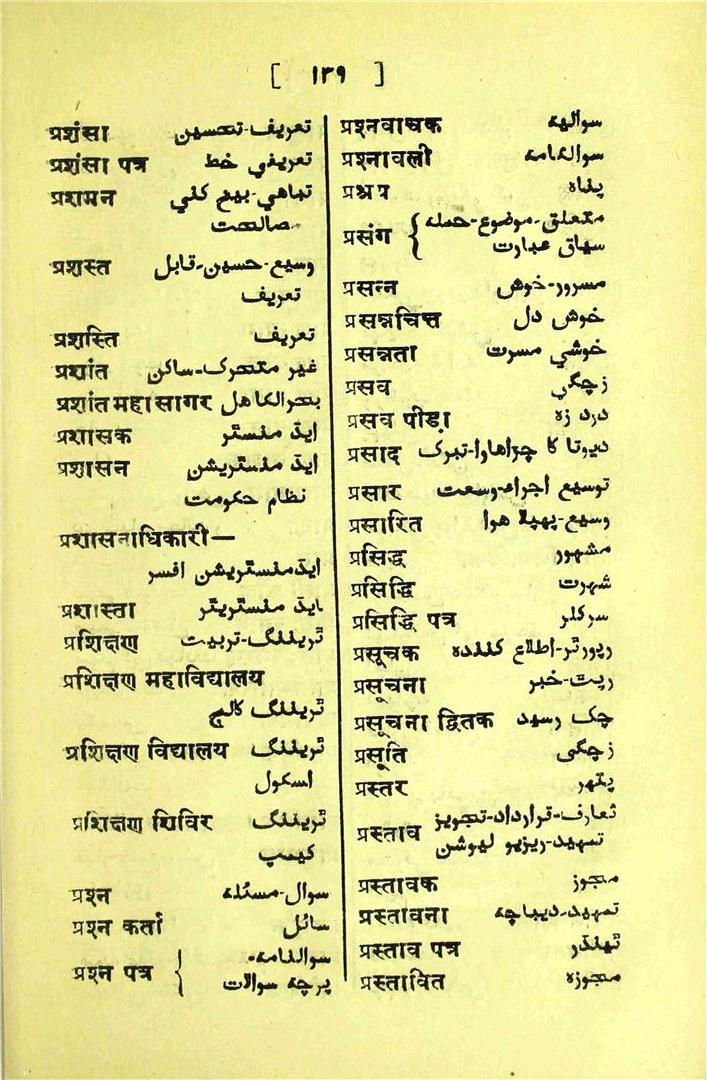 [ ۱۳۹ ]
प्रशंसा تعریف-تحسین
प्रशंसा पत्र تعریفی خط
प्रशमन تباهی-بیخ کنی
مصالحت
प्रशस्त وسیع-حسین-قابل
تعریف
प्रशस्ति تعریف
प्रशांत غیر متحرک-ساکن
प्रशांत महासागर بحرالکاهل
प्रशासक ایڈ منسٹر
प्रशासन ایڈ منسٹریشن
نظام حکومت
प्रशासनाधिकारी—
ایڈمنسٹریشن افسر
प्रशास्ता ایڈ منسٹریٹر
प्रशिक्षण ٹریننگ-تربیت
प्रशिक्षण महाविद्यालय
ٹریننگ کالج
प्रशिक्षण विद्यालय ٹریننگ
اسکول
प्रशिक्षण शिविर ٹریننگ
کیمپ
प्रश्न سوال-مسئلہ
प्रश्न कर्ता سائل
प्रश्न पत्र { سوالنامہ-
پرچہ سوالات
प्रश्नवाचक سوالیہ
प्रश्नावली سوالنامہ
प्रश्रय پناہ
प्रसंग { متعلق-موضوع-حملہ
سیاق عبارت
प्रसन्न مسرور-خوش
प्रसन्नचित्त خوش دل
प्रसन्नता خوشی مسرت
प्रसव زچگی
प्रसव पीड़ा درد زہ
प्रसाद دیوتا کا چڑاھاوا-تبرک
प्रसार توسیع اجراء-وسعت
प्रसारित وسیع-پھیلا ھوا
प्रसिद्ध مشہور
प्रसिद्धि شہرت
प्रसिद्धि पत्र سرکلر
प्रसूचक رپورٹر-اطلاع کنندہ
प्रसूचना رپٹ-خبر
प्रसूचना द्वितक چک رسید
प्रसूति زچگی
प्रस्तर پتھر
प्रस्ताव تعارف-قرارداد-تجویز
تمہید-ریزیو لیوشن
प्रस्तावक مجوز
प्रस्तावना تمہید-دیباچہ
प्रस्ताव पत्र ٹھنڈر
प्रस्तावित مجوزہ